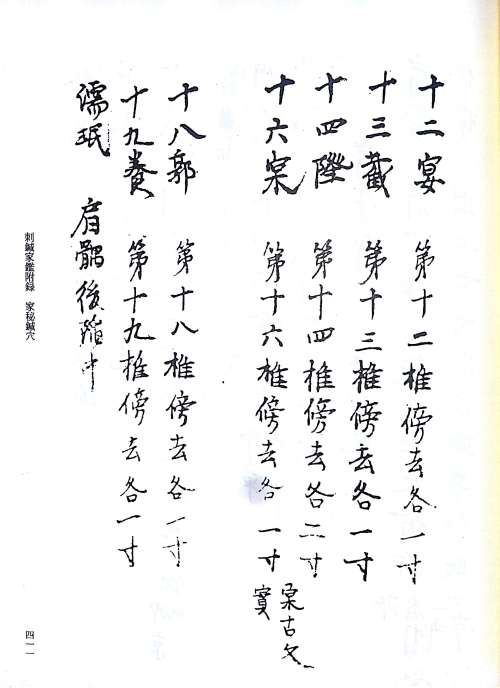 十二宴 第十二椎傍去各一寸
十三截 第十三椎傍去各一寸
十四陞 第十四椎傍去各二寸
十六寀 第十六椎傍去各一寸 寀古文
實
十八郭 第十八椎傍去各一寸
十九賁 第十九椎傍去各一寸
濡珉 肩髃後陷中
刺鍼家鑑附録 家秘鍼穴
四一一